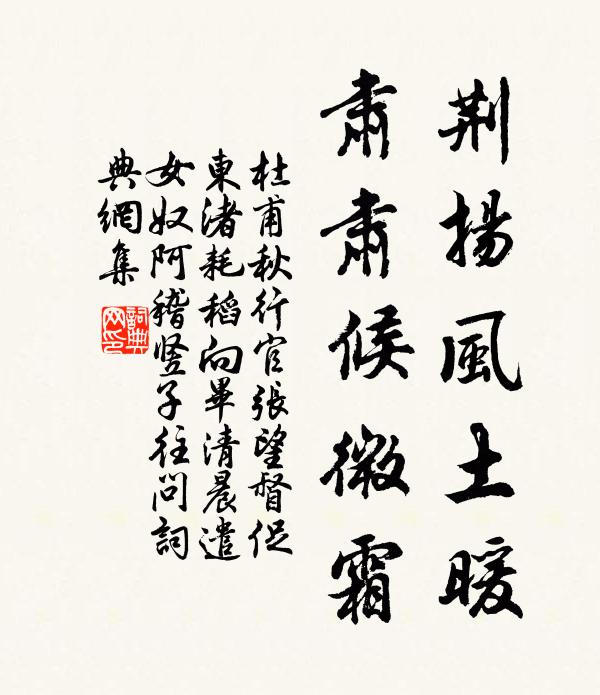 荆揚風土暖
肅肅候微霜
杜甫秋行官張望督促
東渚耗稻向畢清晨遣
女奴阿稽竖子往問詞
典網集
詞典網印